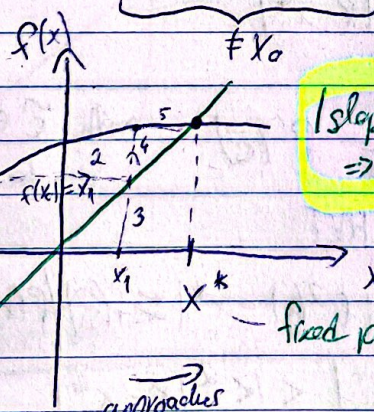 f(x)
≠ X₀
|slop
⇒
5
2
4
f(x) = x₁
3
x₁
X*
fixed p
approaches